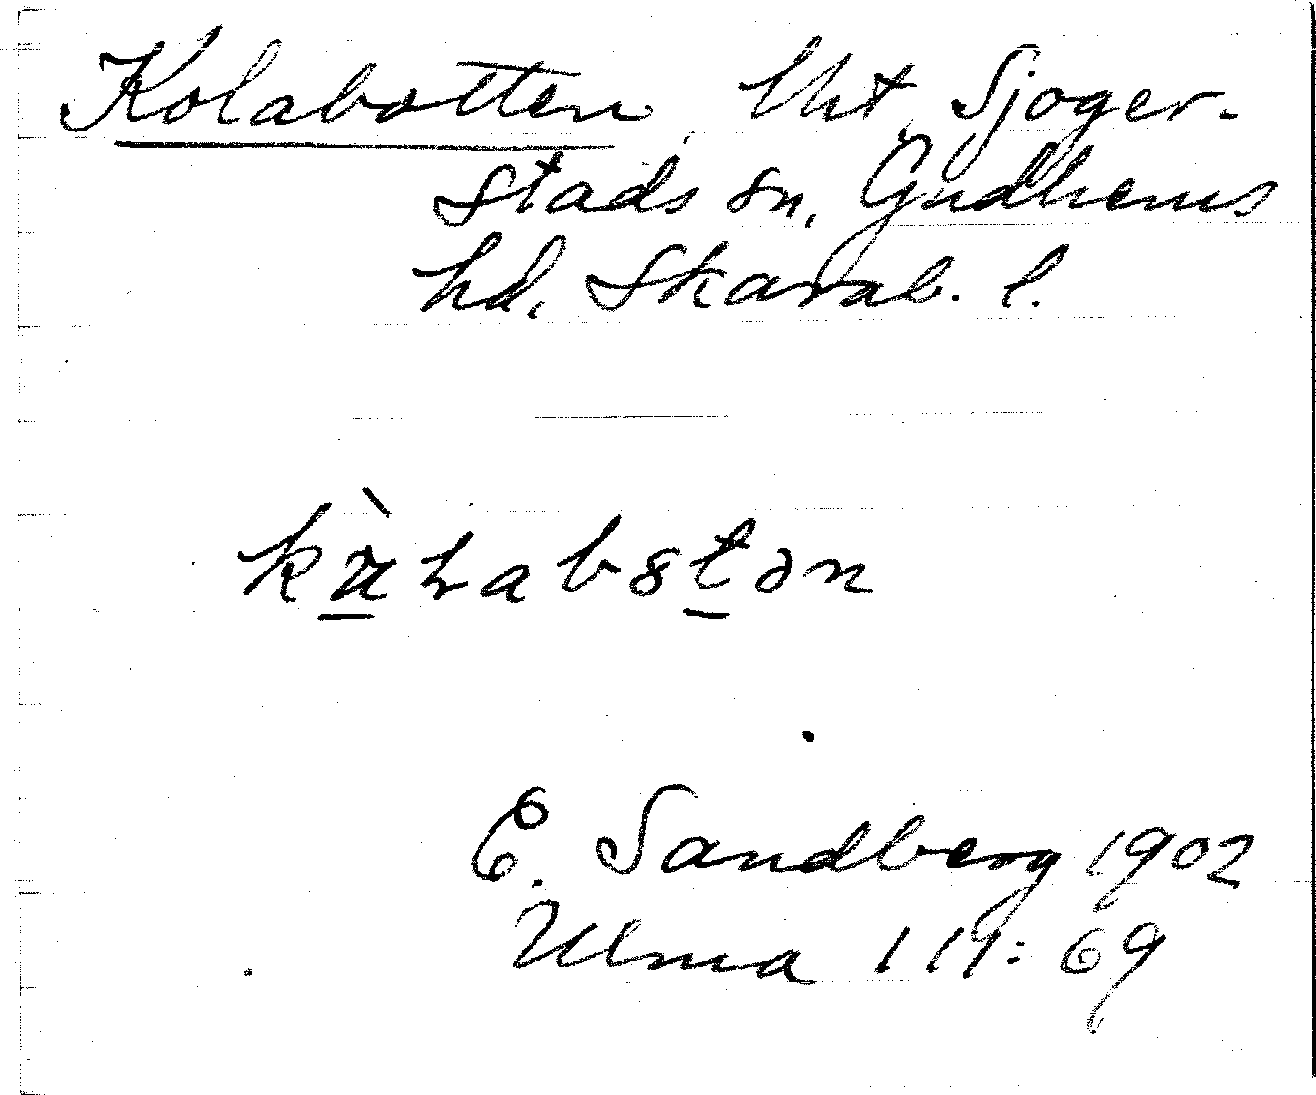 Kolabotten, lht, Sjoger-
stads sn, Gudhems
hd, Skarab. l.
E. Sandberg 1902
Ulma 111: 69